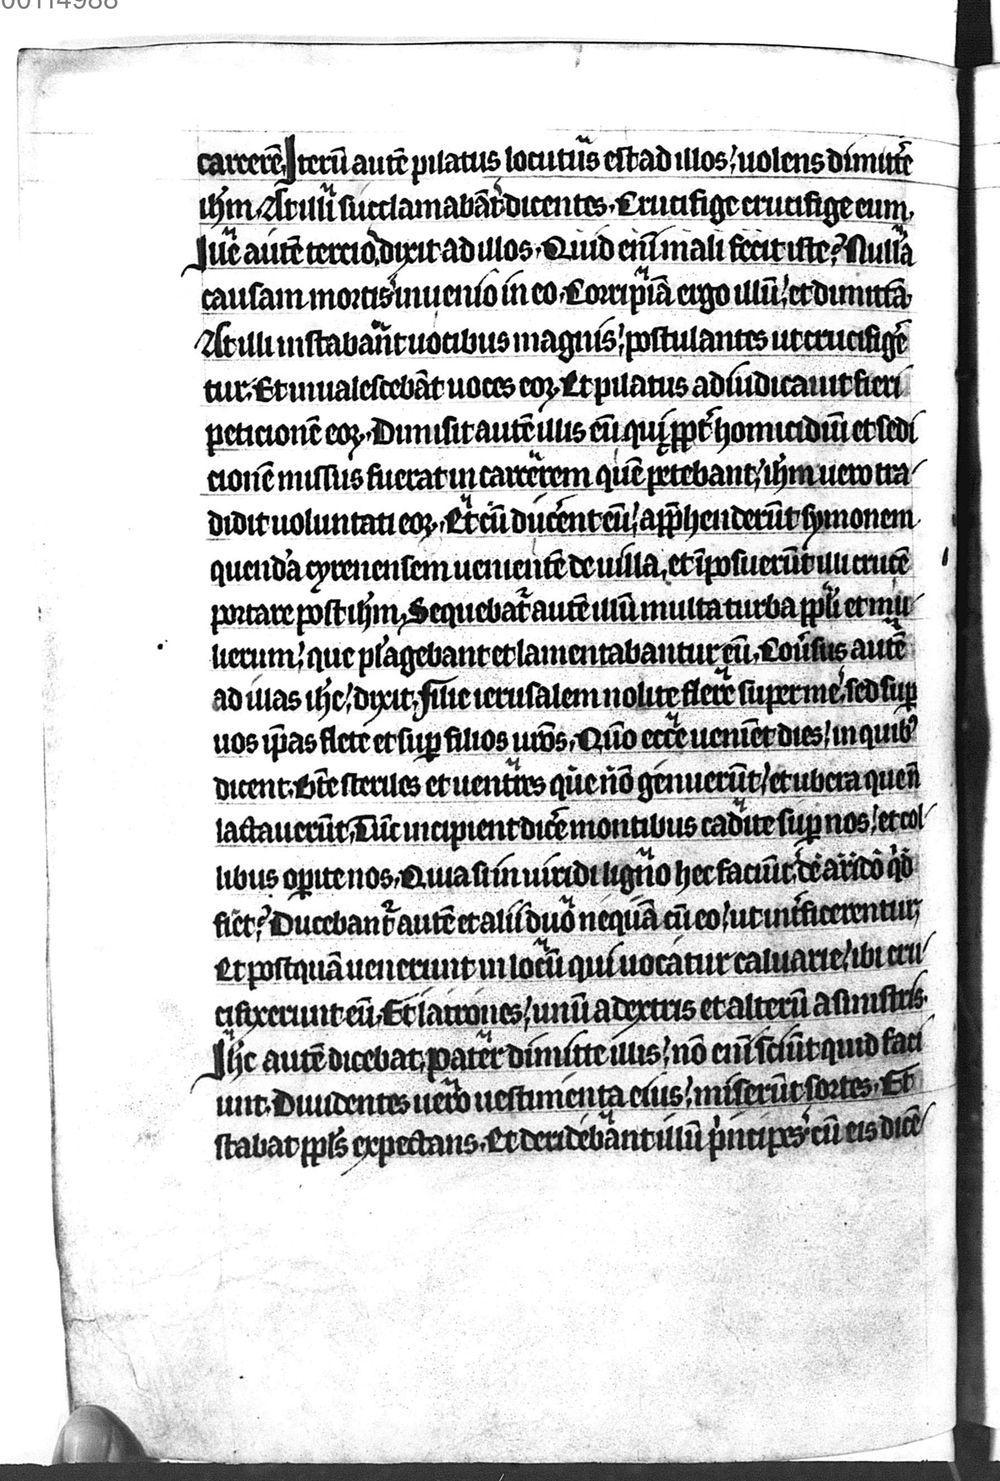 00114988
carcerē. Iterū autē pilatus locutus est ad illos / uolens dimitte͛
ihm. At illi succlamabāt dicentes. Crucifige crucifige eum.
Ille autē tercio dixit ad illos. Quid eni mali fecit iste? Nullā
causam mortis inuenio in eo. Corripiā ergo illū / et dimittā.
At illi instabant uocibus magnis / postulantes ut crucifige͛
tur. Et inualescebāt uoces eoꝝ. Et pilatus adiudicauit fieri
peticionē eoꝝ. Dimisit autē illis eū qui ꝓpt͛ homicidiū et sedi
cionē missus fuerat in carcerem quē petebant / ihm uero tra-
didit uoluntati eoꝝ. Et cū duce͛nt eū / app̄henderūt symonem
quendā cyrenensem uenientē de uilla, et īposuerūt illi crucē
portare post ihm. Sequebat͛ autē illū multa turba ppl̄i et mu-
lierum / que pl̄agebant et lamentabantur eū. Con͛sus autē
ad illas ihc / dixit. Filie ierusalem nolite flere super me / sed suꝑ
uos ip̄as flete et suꝑ filios ur̄os. Qm̄o ecce uenient dies / in quibꝰ
dicent. Bt̄e steriles et uentres que nō genuerūt / et ubera que n̄
lactauerūt. Tūc incipient dice͛ montibus cadite suꝑ nos / et col-
libus oꝑite nos. Quia si in uiridi ligno hec faciūt / in arido qd̄
fiet? Ducebant͛ autē et alii duo nequā cū eo / ut int͛ficerentur.
Et postquā uenerunt in locū qui uocatur caluarie / ibi cru-
cifixerunt eū. Et latrones / unū a dextris et alterū a sinistris.
Ihc autē dicebat. Pater dimitte illis / nō eni sciūt quid faci
unt. Diuidentes uero uestimenta eius / miserūt sortes. Et
stabat ppl̄s expectans. Et deridebant illū p͛ncipes cū eis dice͛-